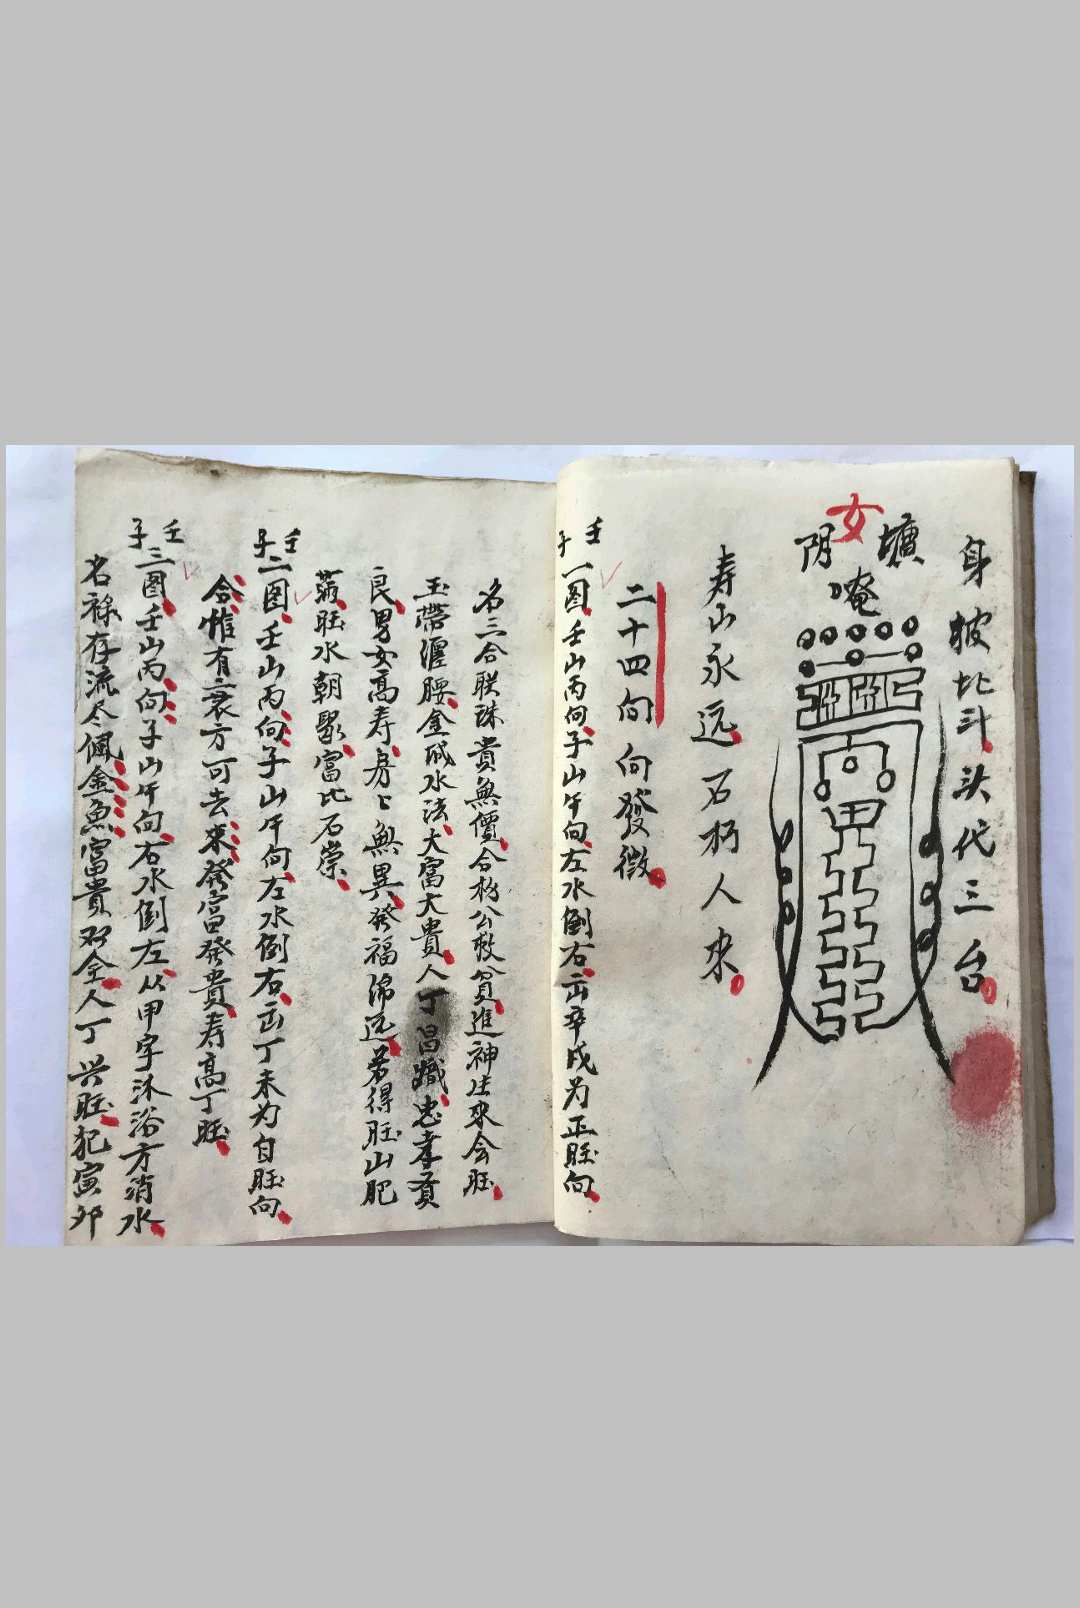 身披北斗头代三台
女
壙
阴
唵
寿山永远石朽人來
二十四向向發微
壬子
一图壬山丙向子山午向左水倒右出辛戌为正旺向
名三合联珠貴無價合杨公救貧進神生來会旺
玉帶纏腰金城水法大富大貴人丁昌熾忠孝賢
良男女高寿房上無異發福绵远若得旺山肥
蒲旺水朝聚富比石崇
壬子
二图壬山丙向子山午向左水倒右出丁未为自旺向
合惟有衰方可去來發富發貴寿高丁旺
壬子
三图壬山丙向子山午向右水倒左从甲字沐浴方消水
名禄存流尽佩金魚富貴双全人丁兴旺犯寅卯